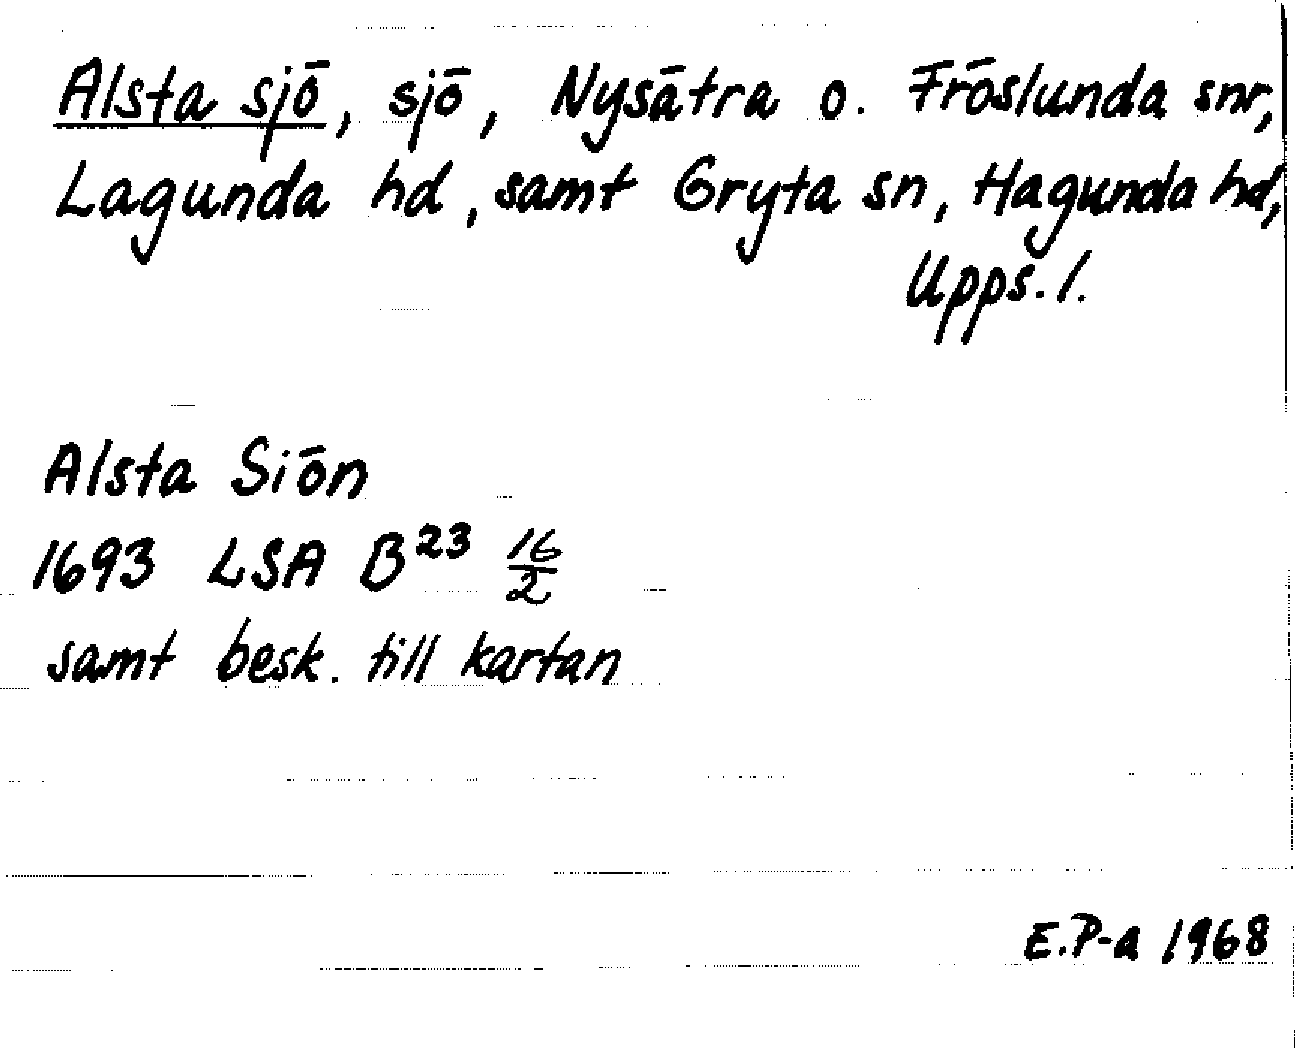 Alsta sjö, sjö, Nysätra o. Fröslunda snr,
Lagunda hd, samt Gryta sn, Hagunda hd,
Upps. l.
Alsta Siön
1693 LSA B²³ 16/2
samt besk. till kartan
E.P-a 1968